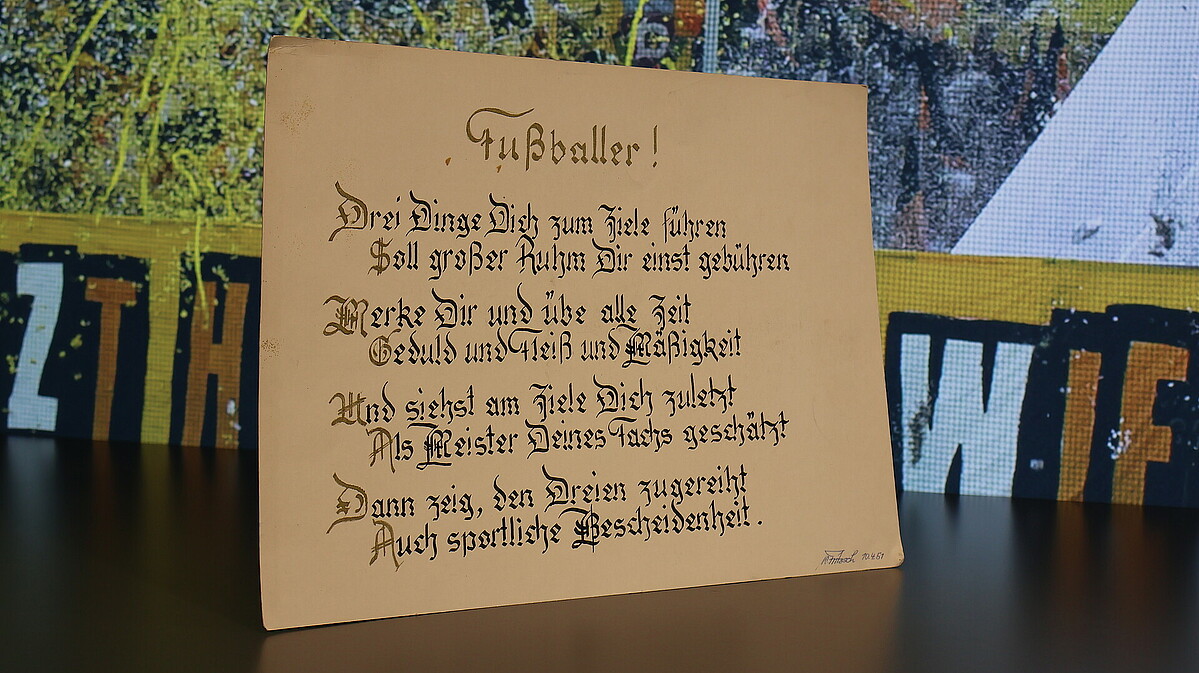 Fußballer!
Drei Dinge Dich zum Ziele führen
Soll großer Ruhm Dir einst gebühren
Merke Dir und übe alle Zeit
Geduld und Fleiß und Mäßigkeit
Und siehst am Ziele Dich zuletzt
Als Meister Deines Fachs geschätzt
Dann zeig, den Dreien zugereiht
Auch sportliche Bescheidenheit.
10.4.61
ZTH
WIF